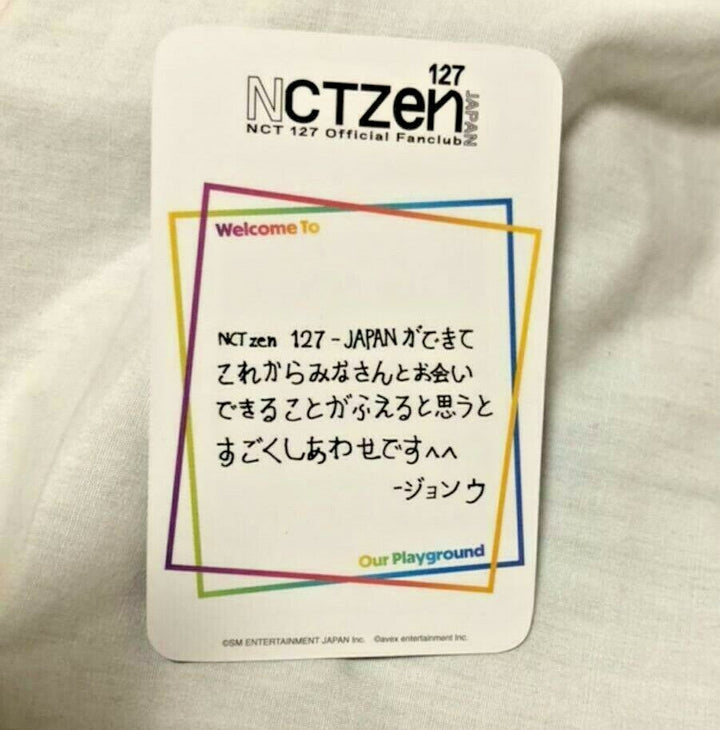 127
NCTzen
JAPAN
NCT 127 Official Fanclub
Welcome To
NCTzen 127-JAPANができて
これからみなさんとお会い
できることがふえると思うと
すごくしあわせです^^
-ジョンウ
Our Playground
©SM ENTERTAINMENT JAPAN Inc. ©avex entertainment Inc.